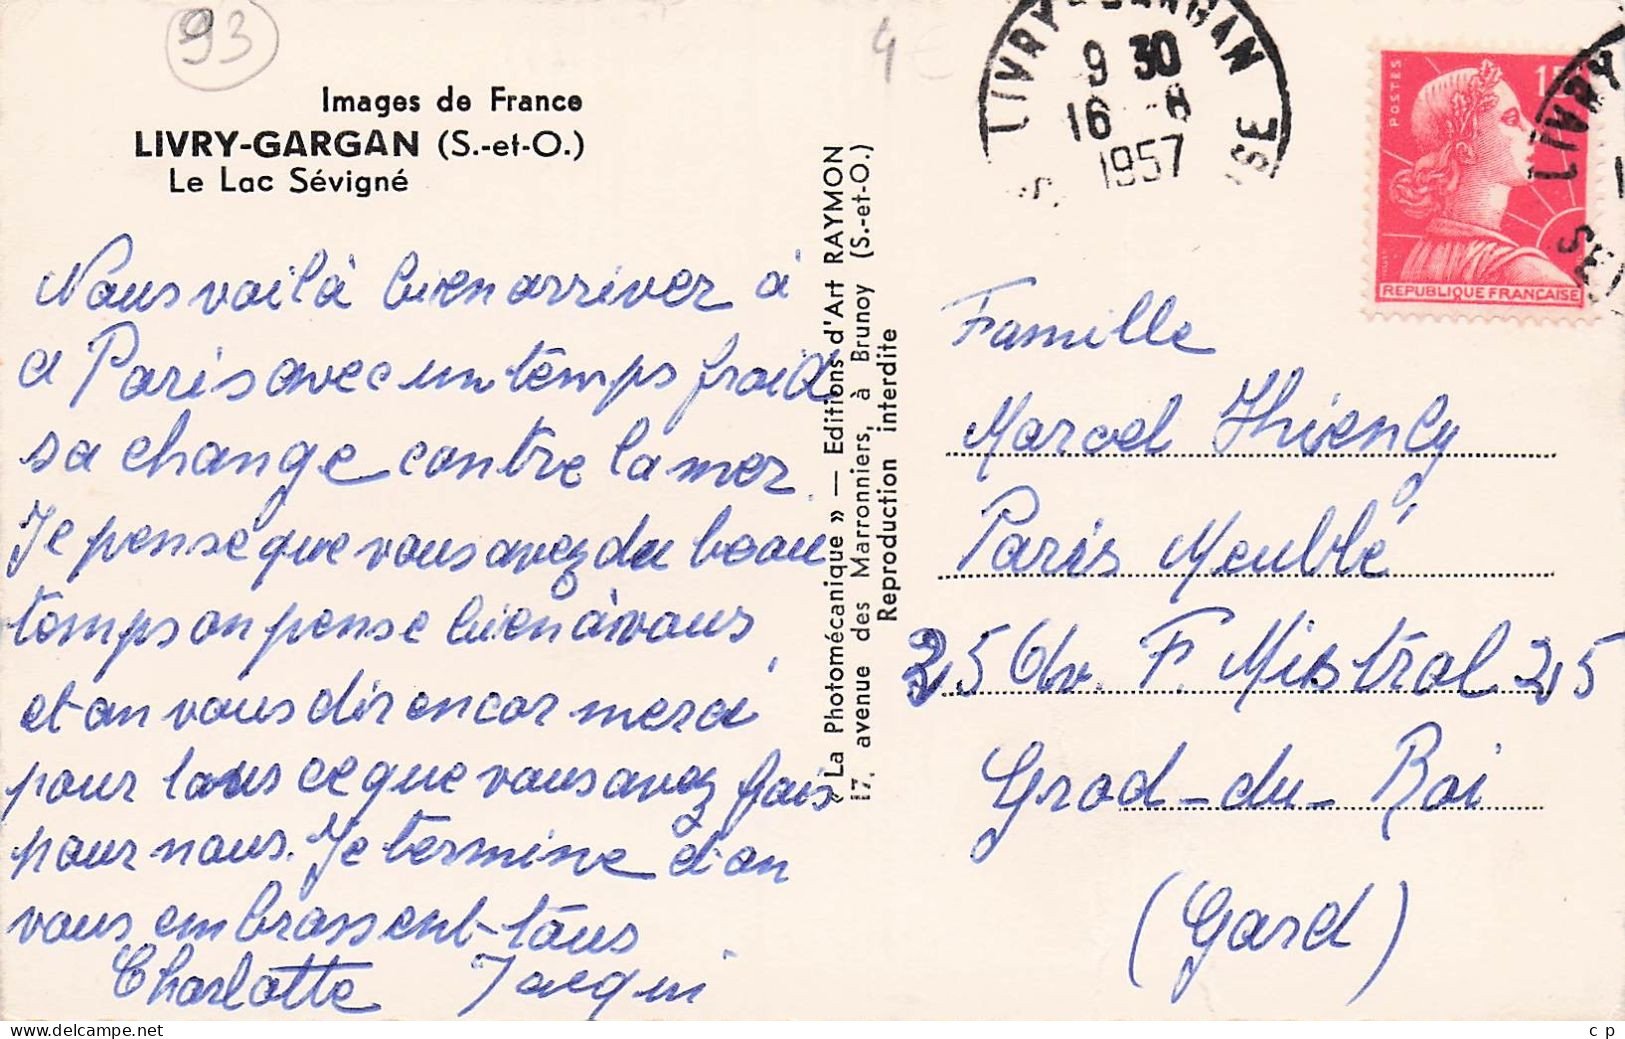 93
4€
Images de France
LIVRY-GARGAN (S.-et-O.)
Le Lac Sévigné
Nous voilà bien arriver à
a Paris avec un temps froid
sa change contre la mer.
Je pense que vous avez du beau
temps on pense bien à vous
et on vous dir encor merci
pour tous ce que vous avez fais
pour nous. Je termine et on
vous embrassent tous
Charlotte Jacqui
« La Photomécanique » — Editions d'Art RAYMON
17, avenue des Marronniers, à Brunoy (S.-et-O.)
Reproduction interdite
LIVRY-GARGAN
9 30
16 -8
1957
POSTES
15
REPUBLIQUE FRANÇAISE
LIVRY
Famille
Marcel
Paris Meublé
25 Av. F. Mistral 25
Grod-du-Roi
(Gard)
c p
www.delcampe.net